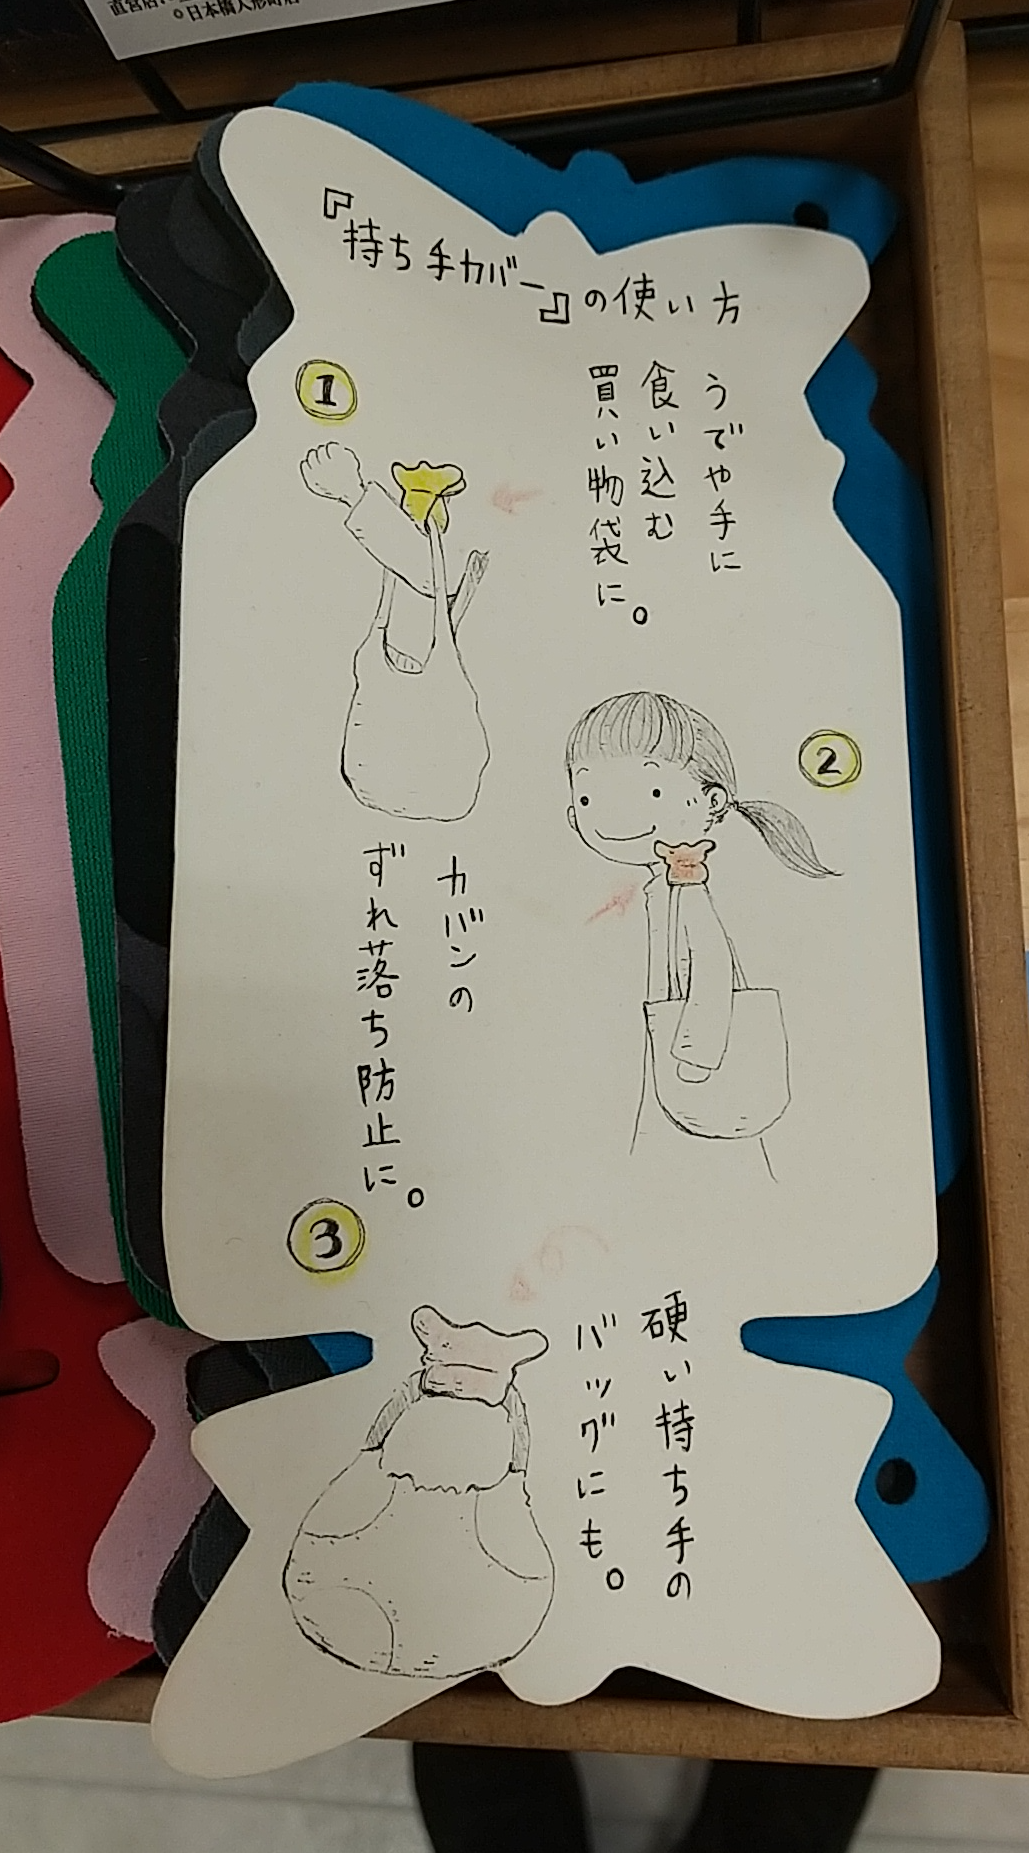 。日本橋人形町店
『持ち手カバー』の使い方
1
うでや手に
食い込む
買い物袋に。
2
カバンの
ずれ落ち防止に。
3
硬い持ち手の
バッグにも。